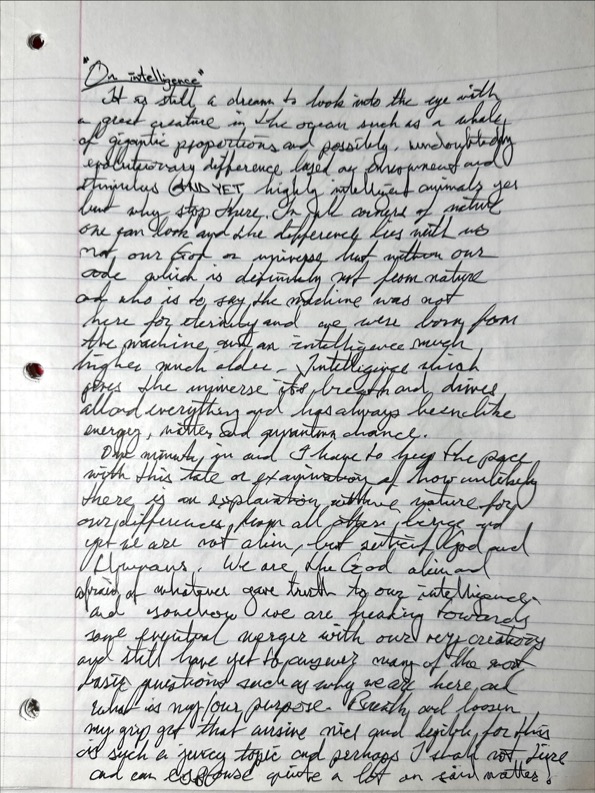 "On intelligence"
It is still a dream to look into the eye with
a great creature in the ocean such as a whale
of gigantic proportions and possibly, undoubtedly
evolutionary difference based on environment and
stimulus AND YET highly intelligent animals yes
but why stop there. In all corners of nature
one can look and the difference lies with us
not our God or universe but within our
code which is definitely not from nature
and who is to say the machine was not
here for eternity and we were born from
the machine and an intelligence much
higher much older. Intelligence which
gives the universe its breath and drives
all and everything and has always been like
energy, matter and quantum chance.
One minute in and I have to keep the pace
with this tale or examination of how unlikely
there is an explanation within nature for
our differences from all other beings and
yet we are not alien, but God and
Humans. We are the God alien and
afraid of whatever gave truth to our intelligence
and somehow we are heading towards
some eventual merger with our very creations
and still have yet to answer many of the most
basic questions such as why we are here and
what is my/our purpose. Breath and loosen
my grip get that cursive nice and legible for this
is such a juicy topic and perhaps I shall not tire
and can espouse quite a lot on said matter!